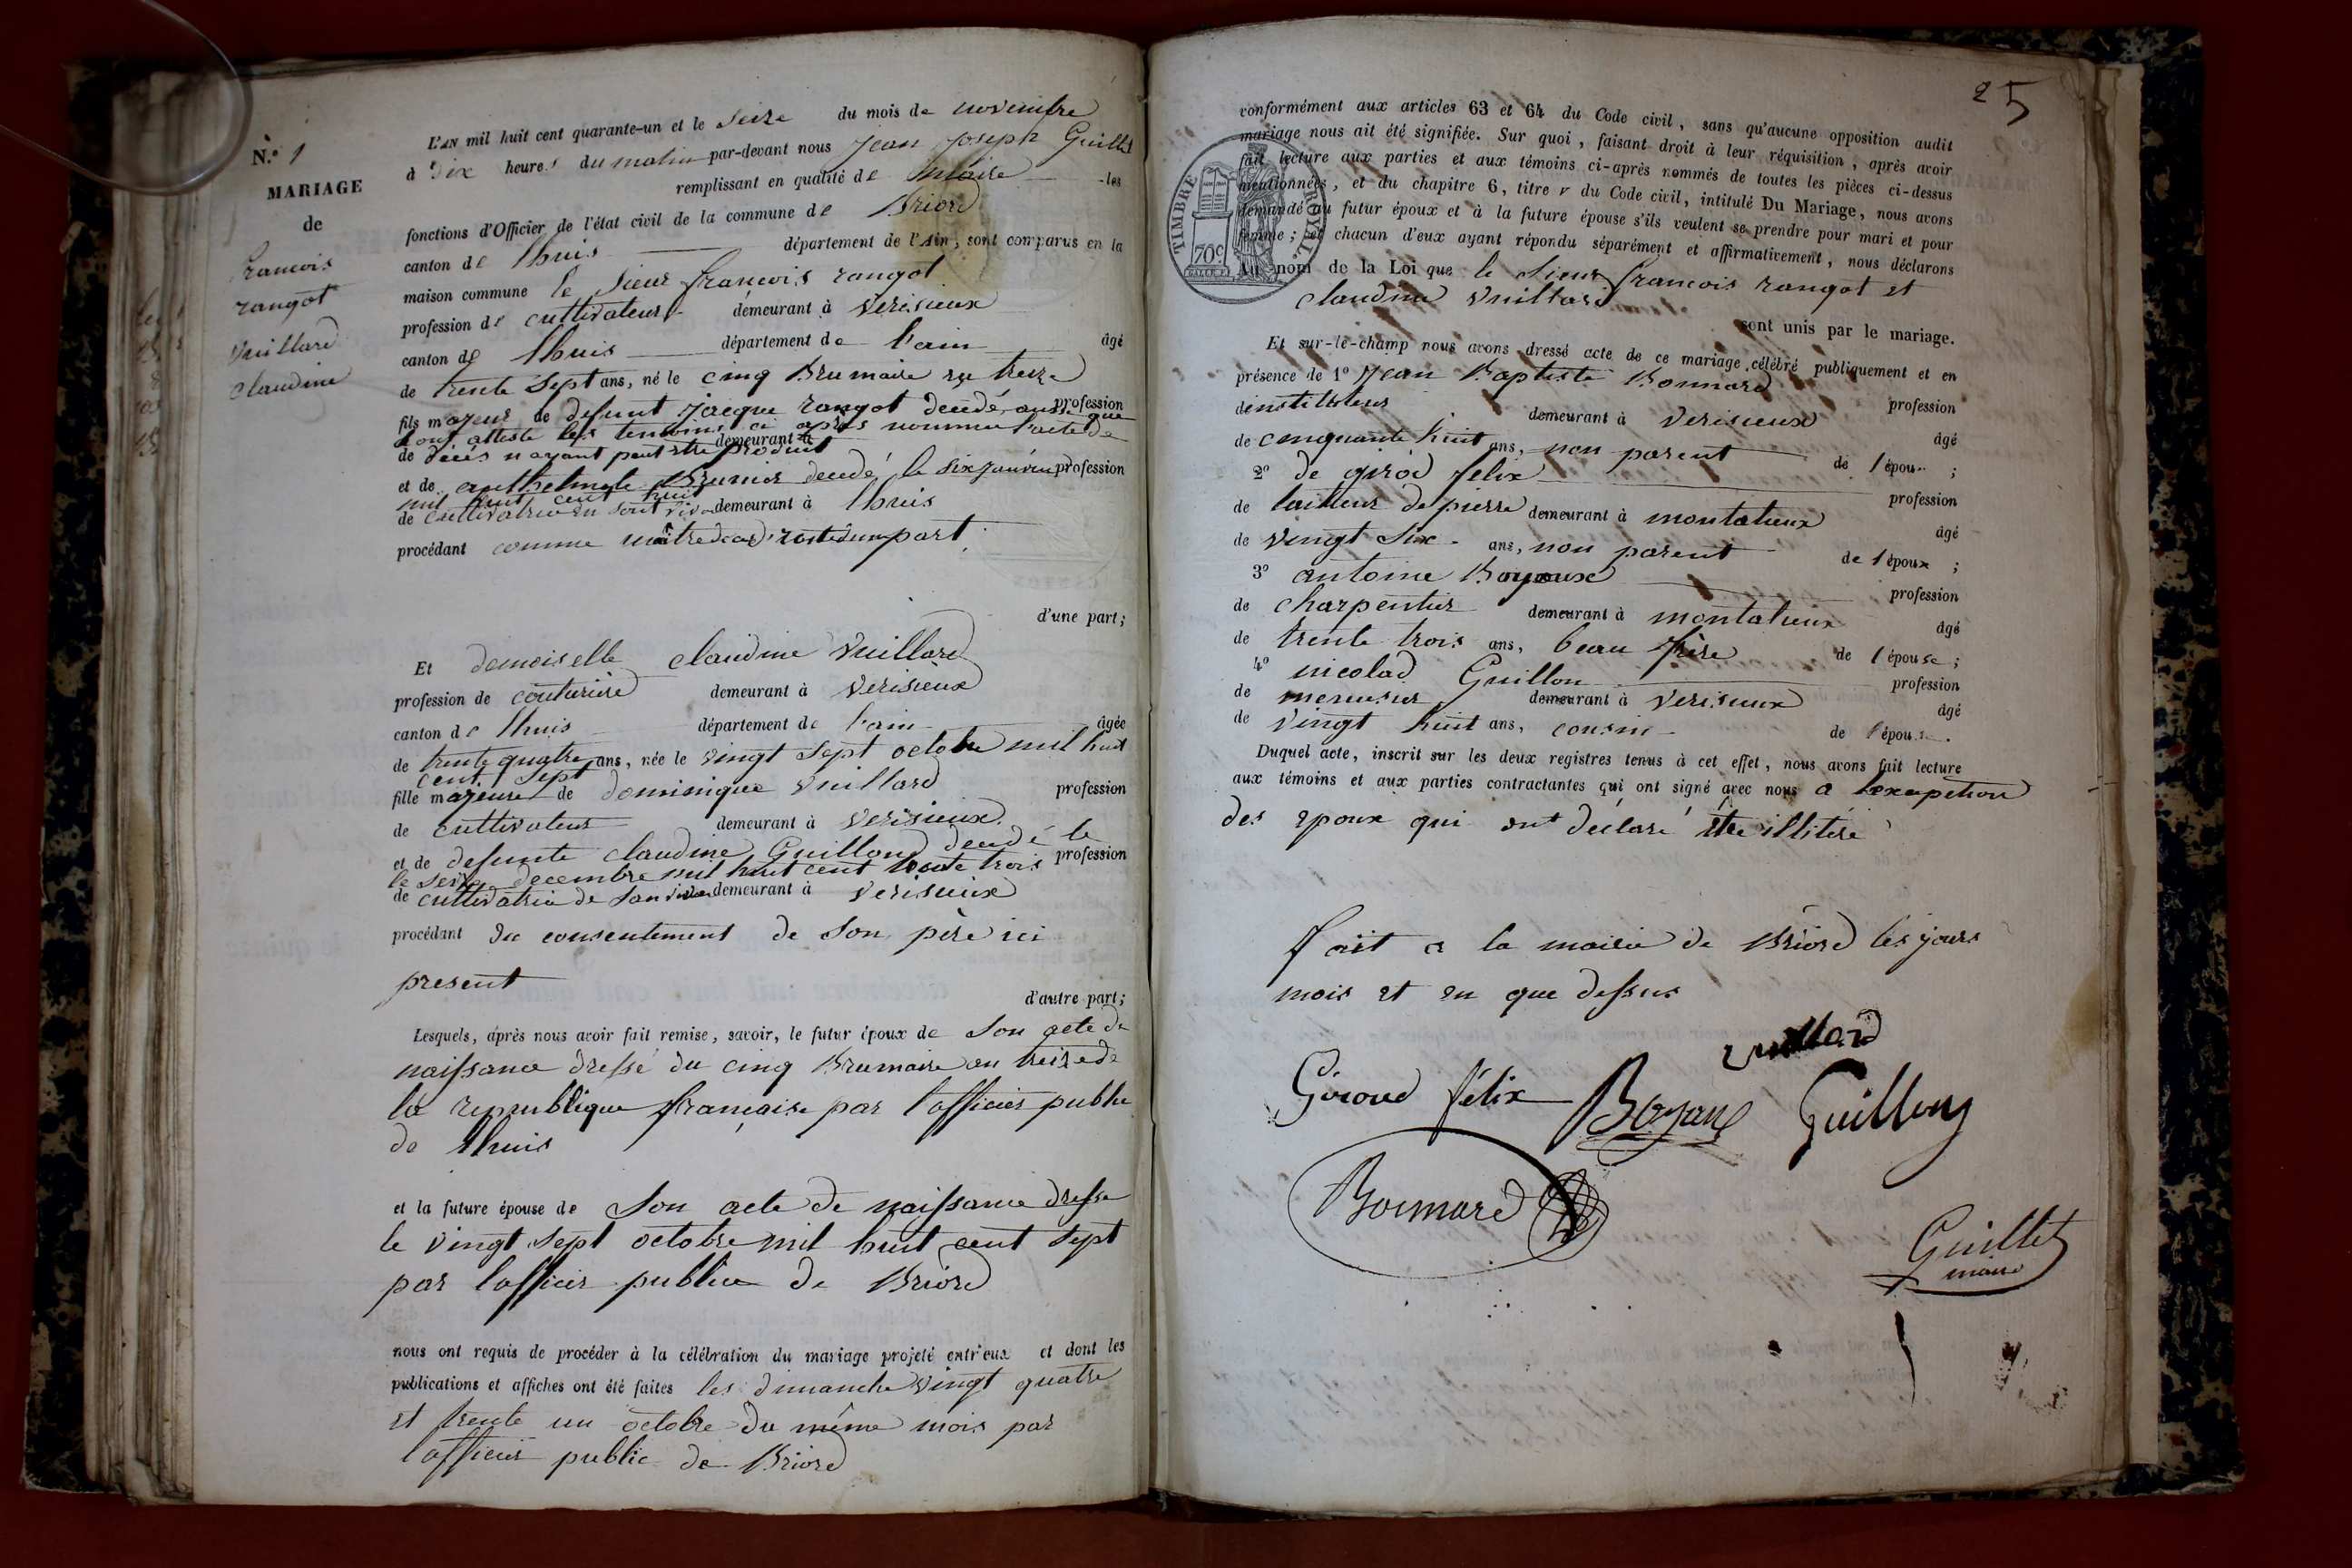 N.º 1
MARIAGE
de
francois
rangot
Vuillard
claudine
L'AN mil huit cent quarante-un et le Seize du mois de novembre
à Dix heures du matin par-devant nous Jean Joseph Guillet
remplissant en qualité de Maire les
fonctions d'Officier de l'état civil de la commune de Briord
canton de lhuis département de l'Ain, sont comparus en la
maison commune le Sieur francois rangot
profession de cultivateur demeurant à Verisieux
canton de lhuis département de l'ain âgé
de trente Sept ans, né le cinq Brumaire treize
fils majeur de defunt Jacque rangot decedé ainsi que profession
dont atteste les temoins ci après nommés l'acte de
de deces n'ayant peut etre produit demeurant à
et de Brunier decedé le six janvier profession
mil huit cent huit
de cultivatrice demeurant à lhuis
procédant comme maitre de ses droits d'une part
d'une part;
Et demoiselle claudine Vuillard
profession de couturière demeurant à Verisieux
canton de lhuis département de l'ain âgée
de trente quatre ans, née le vingt Sept octobre mil huit
cent Sept
fille majeure de dominique Vuillard profession
de cultivateur demeurant à Verisieux
et de defunte claudine Guillond decedé le profession
le seize decembre mil huit cent trente trois
de cultivatrice de son vivan demeurant à Verisieux
procédant du consentement de Son père ici
present
d'autre part;
Lesquels, après nous avoir fait remise, savoir, le futur époux de Son acte de
naissance dressé du cinq Brumaire an treize de
la republique française par l'officier public
de lhuis
et la future épouse de Son acte de naissance dresse
le vingt sept octobre mil huit cent sept
par l'officier public de Briord
nous ont requis de procéder à la célébration du mariage projeté entr'eux et dont les
publications et affiches ont été faites les dimanche vingt quatre
et trente un octobre du même mois par
l'officier public de Briord
25
conformément aux articles 63 et 64 du Code civil, sans qu'aucune opposition audit
mariage nous ait été signifiée. Sur quoi, faisant droit à leur réquisition, après avoir
fait lecture aux parties et aux témoins ci-après nommés de toutes les pièces ci-dessus
mentionnées, et du chapitre 6, titre v du Code civil, intitulé Du Mariage, nous avons
demandé au futur époux et à la future épouse s'ils veulent se prendre pour mari et pour
femme; et chacun d'eux ayant répondu séparément et affirmativement, nous déclarons
Au nom de la Loi que le Sieur francois rangot et
claudine Vuillard
sont unis par le mariage.
TIMBRE ROYAL
70c
Et sur-le-champ nous avons dressé acte de ce mariage célébré publiquement et en
présence de 1º Jean Baptiste Bonnard profession
d'instituteur demeurant à Verisieux âgé
de cinquante huit ans, non parent de l'époux;
2º de girod felix profession
de tailleur de pierre demeurant à montalieux âgé
de vingt Six ans, non parent de l'époux;
3º antoine Boyoux profession
de charpentier demeurant à montalieux âgé
de trente trois ans, beau frère de l'épouse;
4º nicolad Guillon profession
de menusier demeurant à Verisieux âgé
de vingt huit ans, cousin de l'épouse.
Duquel acte, inscrit sur les deux registres tenus à cet effet, nous avons fait lecture
aux témoins et aux parties contractantes qui ont signé avec nous a l'exception
des epoux qui ont declaré être illitéré
fait a la mairie de Briord les jours
mois et an que dessus
Vuillard
Giroud félix Boyaux Guillong
Bonnard
Guillet
maire